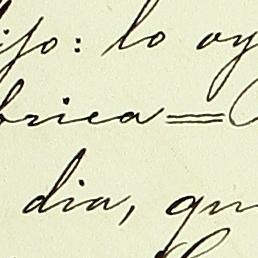 ijo: lo oy
brica=
dia, qu